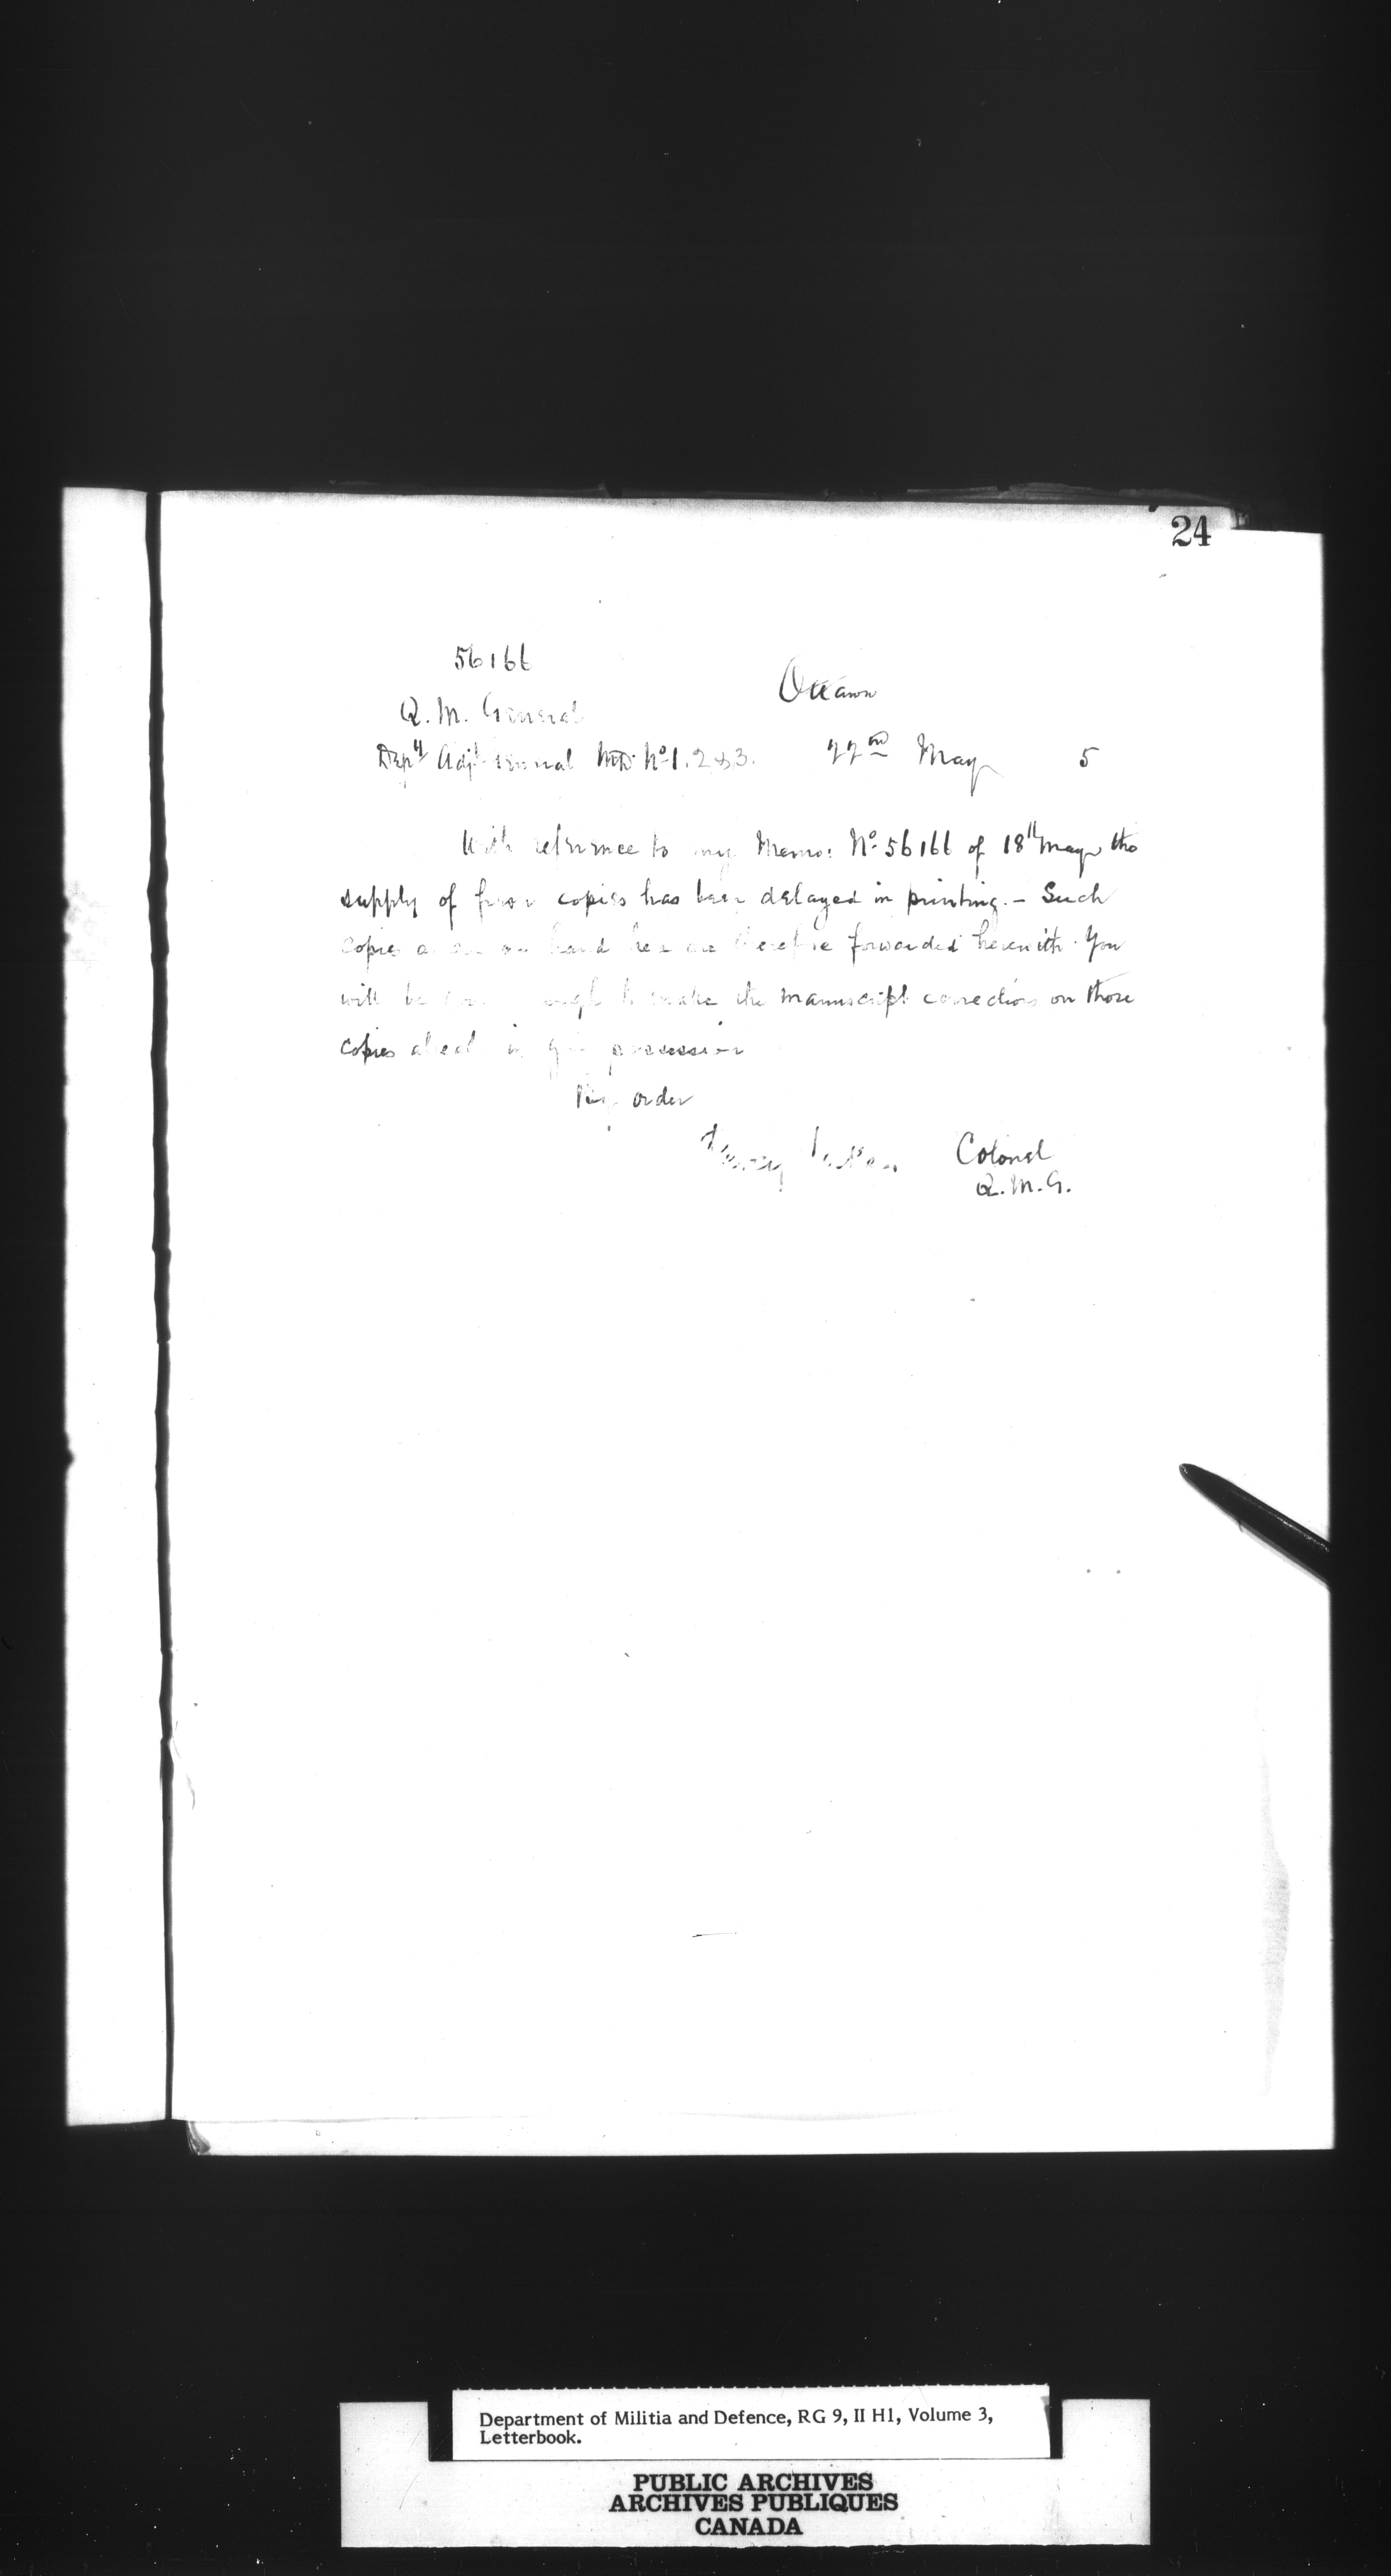 24
56166
Ottawa
Q. M. General
Depy Adjt General MD. No 1. 2 & 3. 22nd May 5
With reference to my Memo: No 56166 of 18th May the
supply of copies has been delayed in printing. – Such
copies as are on hand here are therefore forwarded herewith. You
will be enough to make the manuscript corrections on those
copies already in your possession
By order
Colonel
Q. M. G.
Department of Militia and Defence, RG 9, II H1, Volume 3,
Letterbook.
PUBLIC ARCHIVES
ARCHIVES PUBLIQUES
CANADA